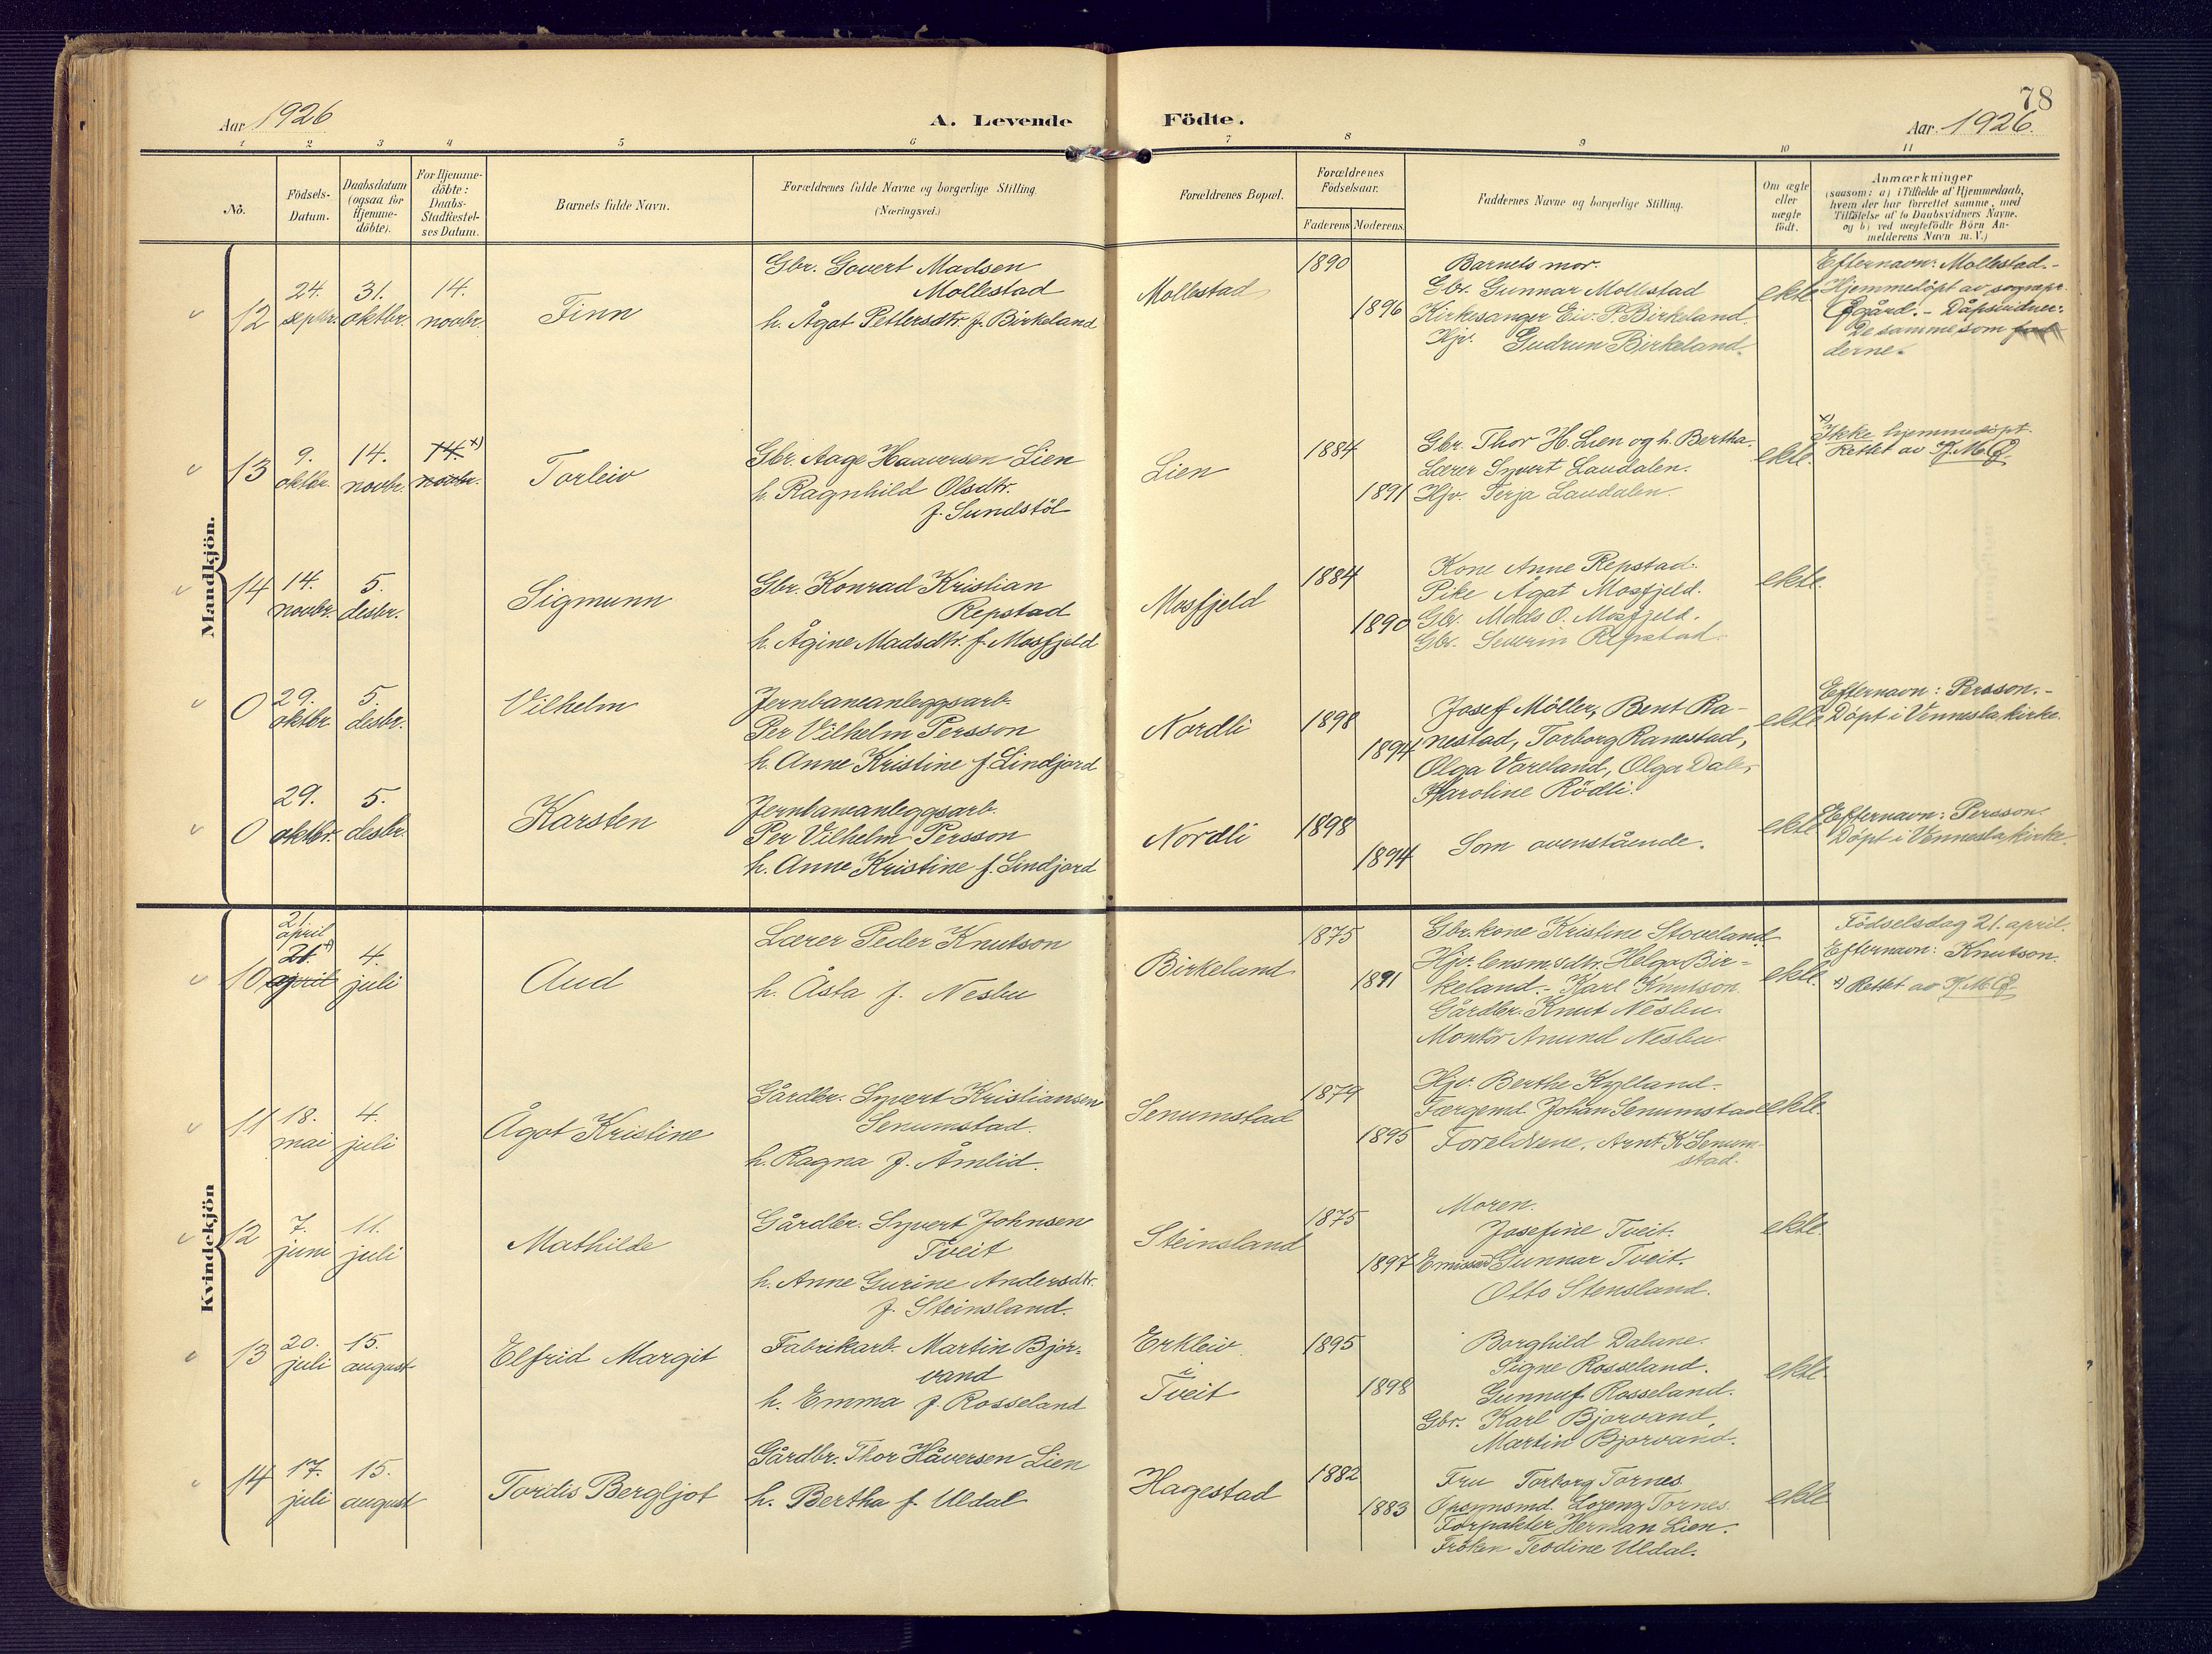 78
Aar 1926
A. Levende Födte.
Aar. 1926.
1 2 3 4 5 6 7 8 9 10 11
No.
Födsels-
Datum.
Daabsdatum
(ogsaa for
Hjemme-
döbte).
For Hjemme-
döbte:
Daabs-
Stadfæstel-
ses Datum.
Barnets fulde Navn.
Forældrenes fulde Navne og borgerlige Stilling.
(Næringsvei.)
Forældrenes Bopæl.
Forældrenes
Födselsaar.
Faderens Moderens.
Faddernes Navne og borgerlige Stilling.
Om ægte
eller
uægte
födt.
Anmærkninger
(saasom: a) i Tilfælde af Hjemmedaab,
hvem der har forrettet samme, med
Tilföielse af to Daabsvidners Navne.
og b) ved uægtefödte Börn An-
melderens Navn m. V.)
Mandkjön.
12
24.
septbr.
31.
oktbr.
14.
novbr.
Finn
Gbr. Govert Madsen
Mollestad
h. Ågot Pettersdtr. f. Birkeland
Mollestad
1890
1896
Barnets mor.
Gbr. Gunnar Mollestad
Kirkesanger Eiv. P. Birkeland.
Hjv. Gudrun Birkeland.
ekte
Efternavn: Mollestad.-
Hjemmedöpt av sognepr.
. - Dåpsvidner:
De samme som fad
derne.
13
9.
oktbr.
14.
novbr.
14. x)
novbr.
Torleiv
Gbr. Aage Haaversen Lien
h. Ragnhild Olsdtr.
f. Sundstöl
Lien
1884
1891
Gbr. Thor H. Lien og h. Bertha.
Lærer Syvert Laudalen.
Hjv. Terja Laudalen.
ekte.
x)
Ikke hjemmedöpt.
Rettet av
14
14.
novbr.
5.
desbr.
Sigmunn
Gbr. Konrad Kristian
Repstad
h. Ågine Madsdtr. f. Mosfjeld
Mosfjeld
1884
1890
Kone Anne Repstad.
Pike Ågot Mosfjeld.
Gbr. Mads O. Mosfjeld.
Gbr. Severin Repstad.
ekte.
0
29.
oktbr
5.
desbr.
Vilhelm
Jernbaneanleggsarb.
Per Vilhelm Persson
h. Anne Kristine f. Lindjord
Nordli
1898
1894
Josef Möller, Bent Ra-
nestad, Torborg Ranestad,
Olga Vareland, Olga Dale,
Karoline Rödli.
ekte
Efternavn: Persson.-
Döpt i Vennesla kirke.
0
29.
oktbr.
5.
desbr.
Karsten
Jernbaneanleggsarb.
Per Vilhelm Persson
h. Anne Kristine f. Lindjord
Nordli
1898
1894
Som ovenstående.
ekte
Efternavn: Persson.
Döpt i Vennesla kirke.
Kvindekjön
10
21.
april
21. x)
april
4.
juli
Aud
Lærer Peder Knutson
h. Åsta f. Nesbu
Birkeland
1875
1891
Gbr.kone Kristine Stoveland
Hjv. lensm.dtr. Helga Bir-
keland. - Karl Knutson
Gårdbr. Knut Nesbu.
Montör Anund Nesbu.
ekte.
Födselsdag 21. april.
Efternavn: Knutson.
x) Rettet av
11
18.
mai
4.
juli
Ågot Kristine
Gårdbr. Syvert Kristiansen
Senumstad.
h. Ragna f. Åmlid.
Senumstad
1879
1895
Hjv. Berthe Kylland.
Færgemd. Johan Senumstad
Foreldrene. Arnt K. Senum-
stad.
ekte.
12
7.
juni
11.
juli
Mathilde
Gårdbr. Syvert Johnsen
Tveit
h. Anne Gurine Andersdtr.
f. Steinsland.
Steinsland
1875
1897
Moren.
Josefine Tveit.
Emissær Gunnar Tveit.
Otto Stensland.
ekte.
13
20.
juli
15.
august
Elfrid Margit
Fabrikarb. Martin Bjor-
vand
h. Emma f. Rosseland
Erkleiv
i
Tveit
1895
1898
Borghild Dalane.
Signe Rosseland.
Gunnuf Rosseland.
Gbr. Karl Bjorvand.
Martin Bjorvand.
ekte.
14
17.
juli
15.
august
Tordis Bergljot
Gårdbr. Thor Håversen Lien
h. Bertha f. Uldal
Hagestad
1882
1883
Fru Torborg Tornes
Opsynsmd. Lorenz Tornes.
Forpakter Herman Lien.
Fröken Teodine Uldal.
ekte